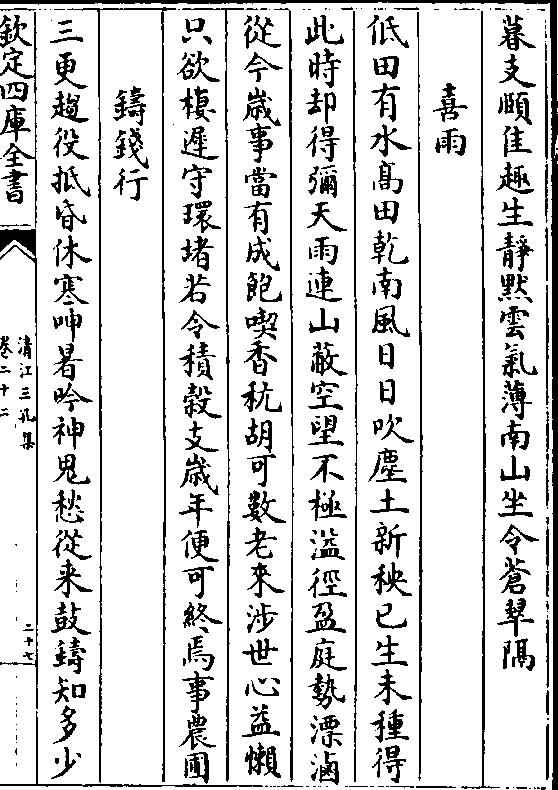 暮支頤佳趣生靜默雲氣薄南山坐令蒼翠隔
喜雨
低田有水髙田乾南風日日吹塵土新秧已生未種得
此時却得彌天雨連山蔽空望不極溢徑盈庭勢漂滷
從今歲事當有成飽喫香秔胡可數老來涉世心益懶
只欲棲遲守環堵若令積穀支歲年便可終焉事農圃
鑄錢行
三更趨役抵昏休寒呻暑吟神鬼愁從来鼓鑄知多少
欽定四庫全書
清江三孔集
卷二十二
二十七